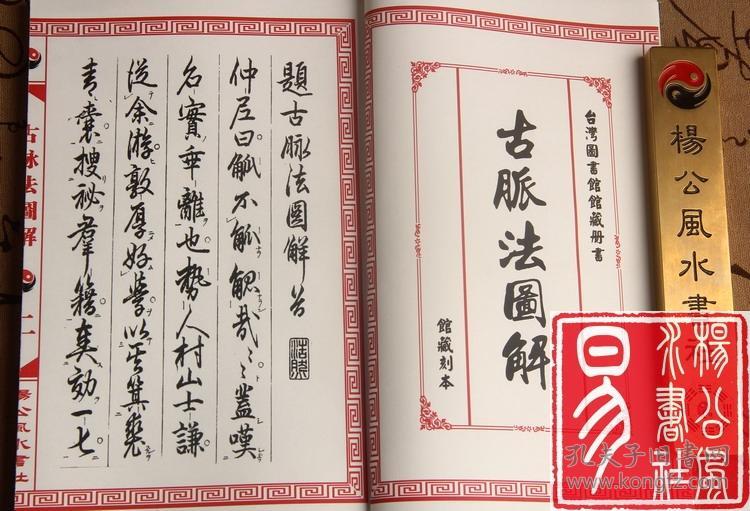 台灣圖書館館藏册書
古脈法圖解
館藏刻本
題古脉法圖解首
仲尼曰觚不觚觚哉〻蓋嘆
名實乖離也勢人村山士謙
從余游敦厚好學以其箕裘
青囊搜祕羣籍奏効一七
古脉法圖解
二
楊公風水書社
楊公風水書社
楊公風水書社
易
孔夫子旧书网
www.kongfz.com